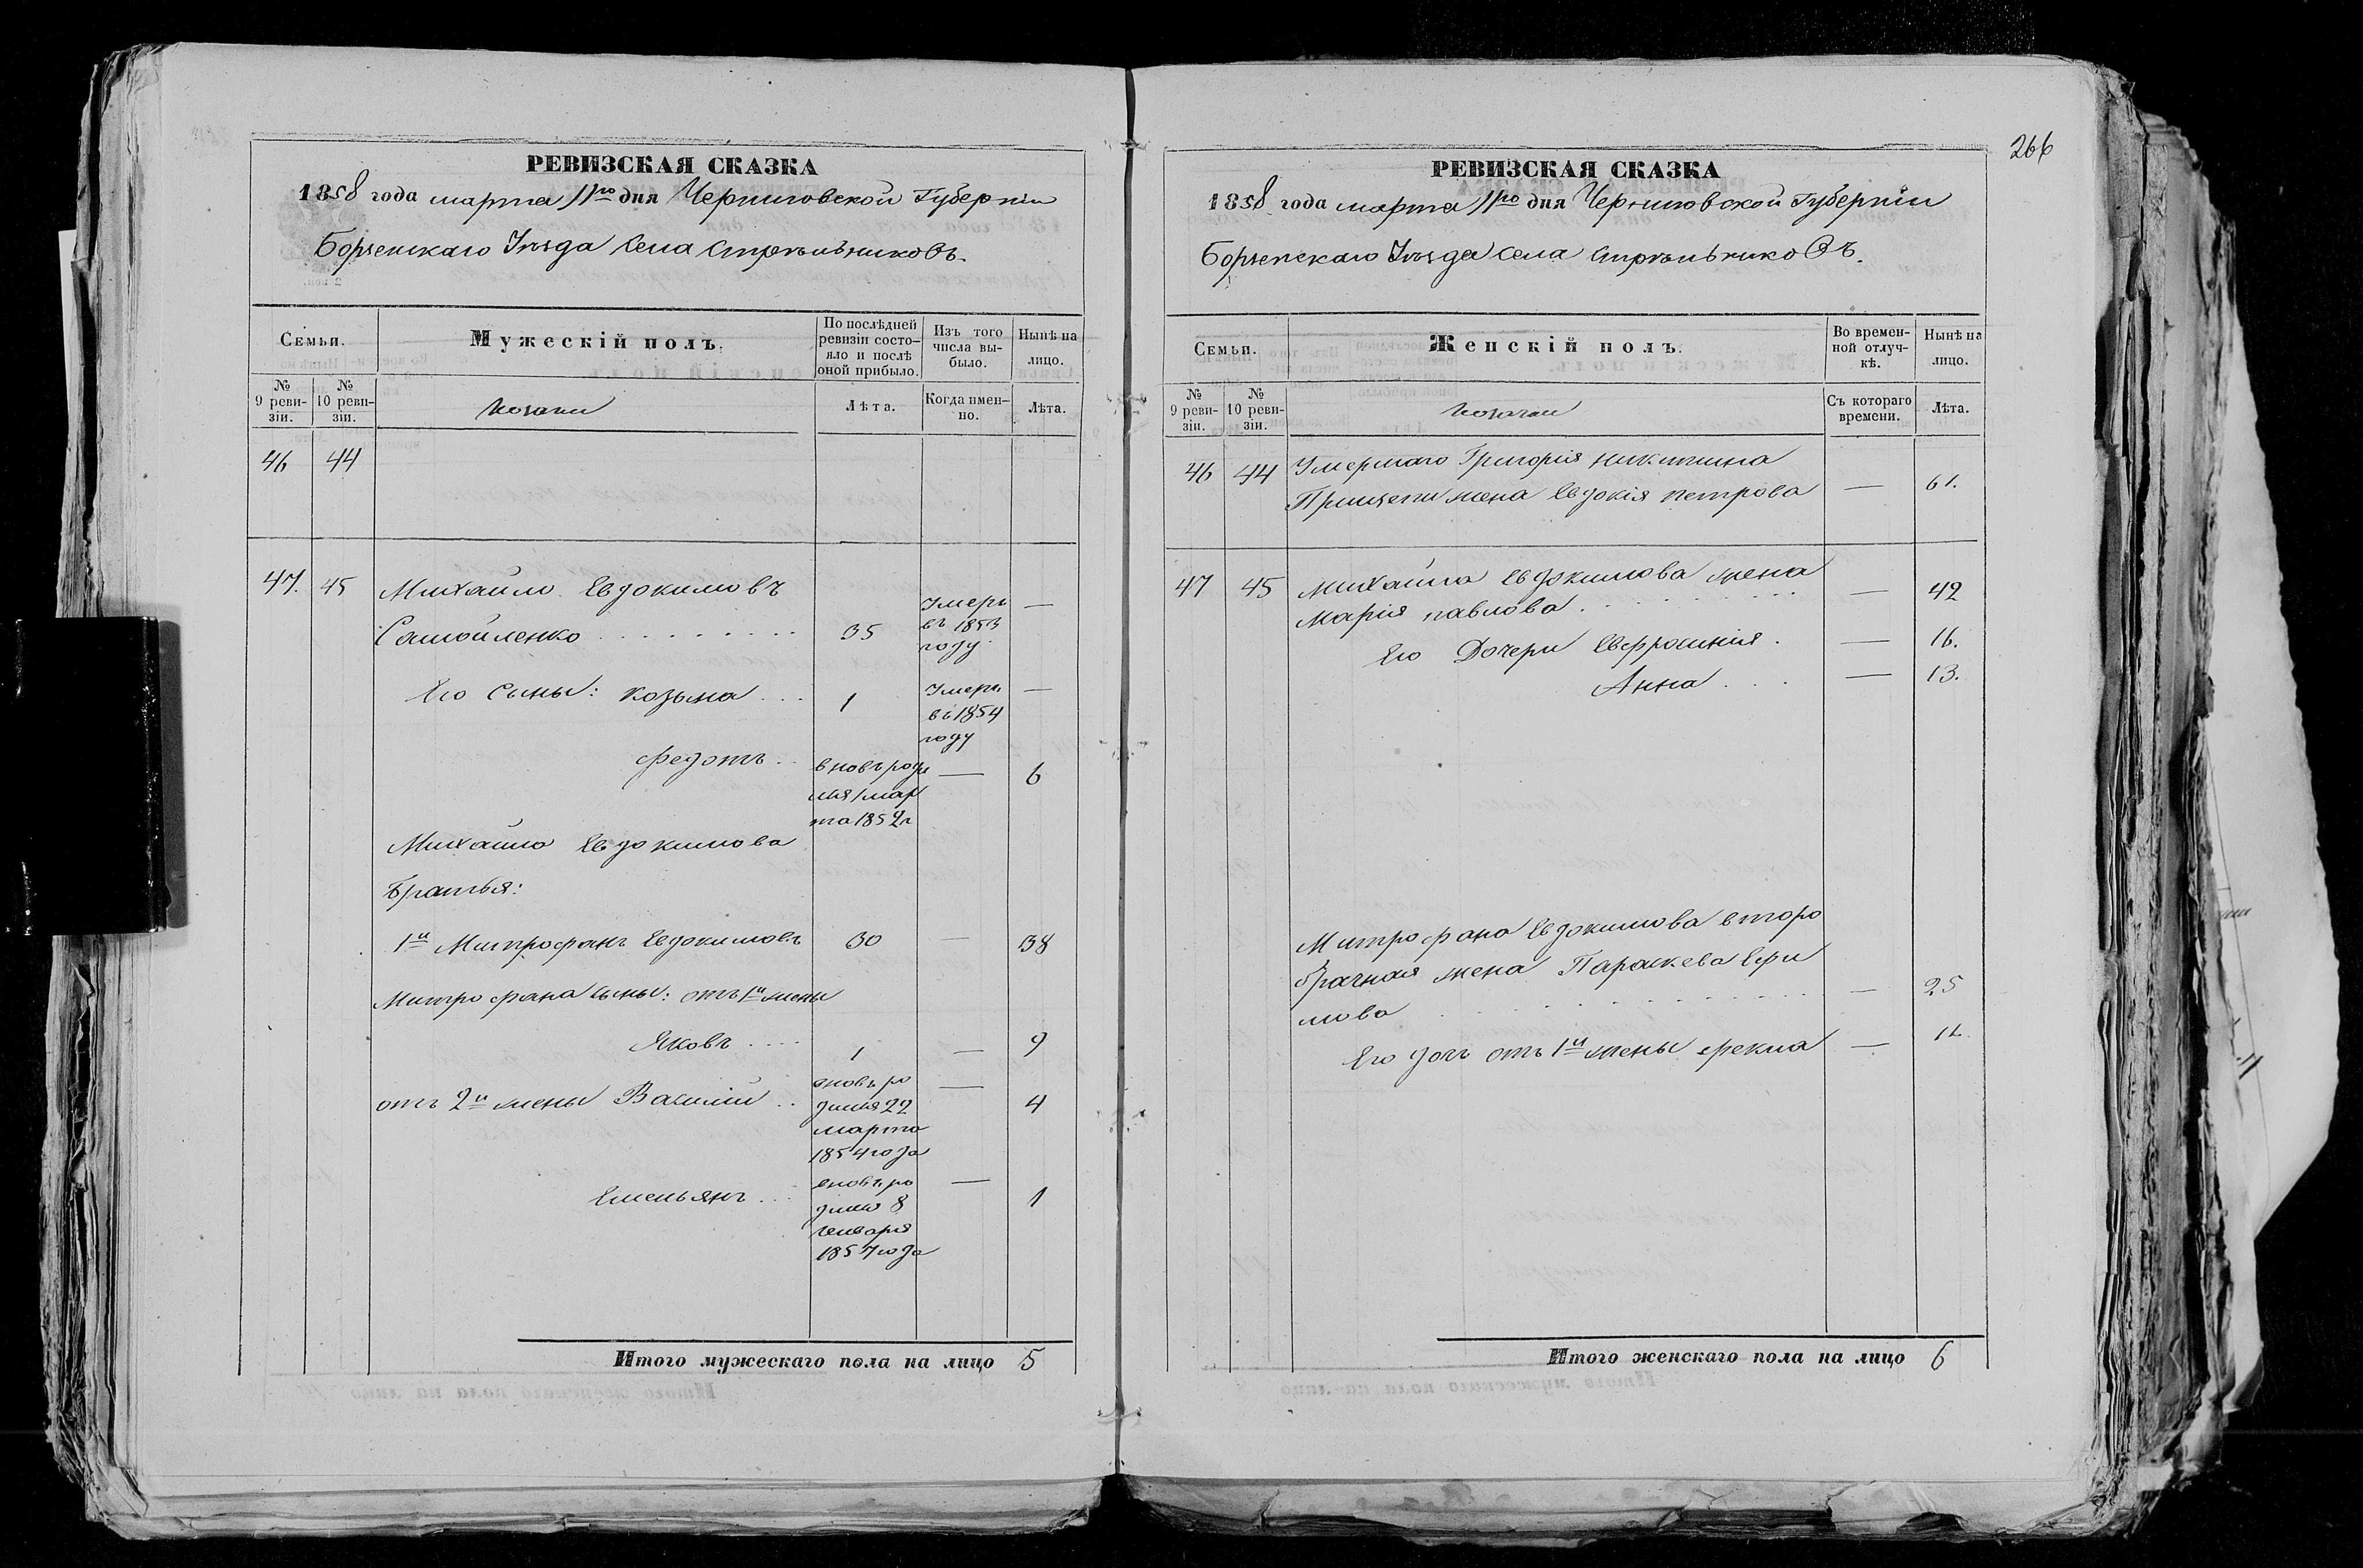 266
РЕВИЗСКАЯ СКАЗКА
1858 года марта 11го дня Черниговской Губерніи
Борзенскаго Уѣзда села Стрѣльниковъ.
Семьи.
Мужескій полъ.
По послѣдней ревизіи состояло и послѣ оной прибыло.
Изъ того числа выбыло.
Нынѣ на лицо.
№ 9 ревизіи.
№ 10 ревизіи.
козаки
Лѣта.
Когда именно.
Лѣта.
46 44
47. 45 Михайло Евдокимовъ
Самойленко 35 Умеръ въ 1853 году —
Его сыны: Козьма 1 Умеръ въ 1854 году —
Федотъ вновь роди лся 1 мар та 1852 г — 6
Михайло Евдокимова
Братья:
1й Митрофанъ Евдокимовъ 30 — 38
Митрофана сыны: отъ 1й жены
Яковъ 1 — 9
отъ 2й жены Василій вновь ро дился 22 марта 1854 года — 4
Емельянъ вновь ро дился 8 генваря 1857 года — 1
Итого мужескаго пола на лицо 5
РЕВИЗСКАЯ СКАЗКА
1858 года марта 11го дня Черниговской Губерніи
Борзенскаго Уѣзда села Стрѣльниковъ.
Семьи.
Женскій полъ.
Во временной отлучкѣ.
Нынѣ на лицо.
№ 9 ревизіи.
№ 10 ревизіи.
козачки
Съ котораго времени.
Лѣта.
46 44 Умершаго Григорія Никитина
Прищепы жена Евдокія Петрова — 61.
47 45 Михайла Евдокимова жена
Марія Павлова — 42
Его Дочери Евфросинія — 16.
Анна — 13.
Митрофана Евдокимова второ
брачная жена Параскева Ефи
мова — 25
Его дочь отъ 1й жены Фекла —
Итого женскаго пола на лицо 6